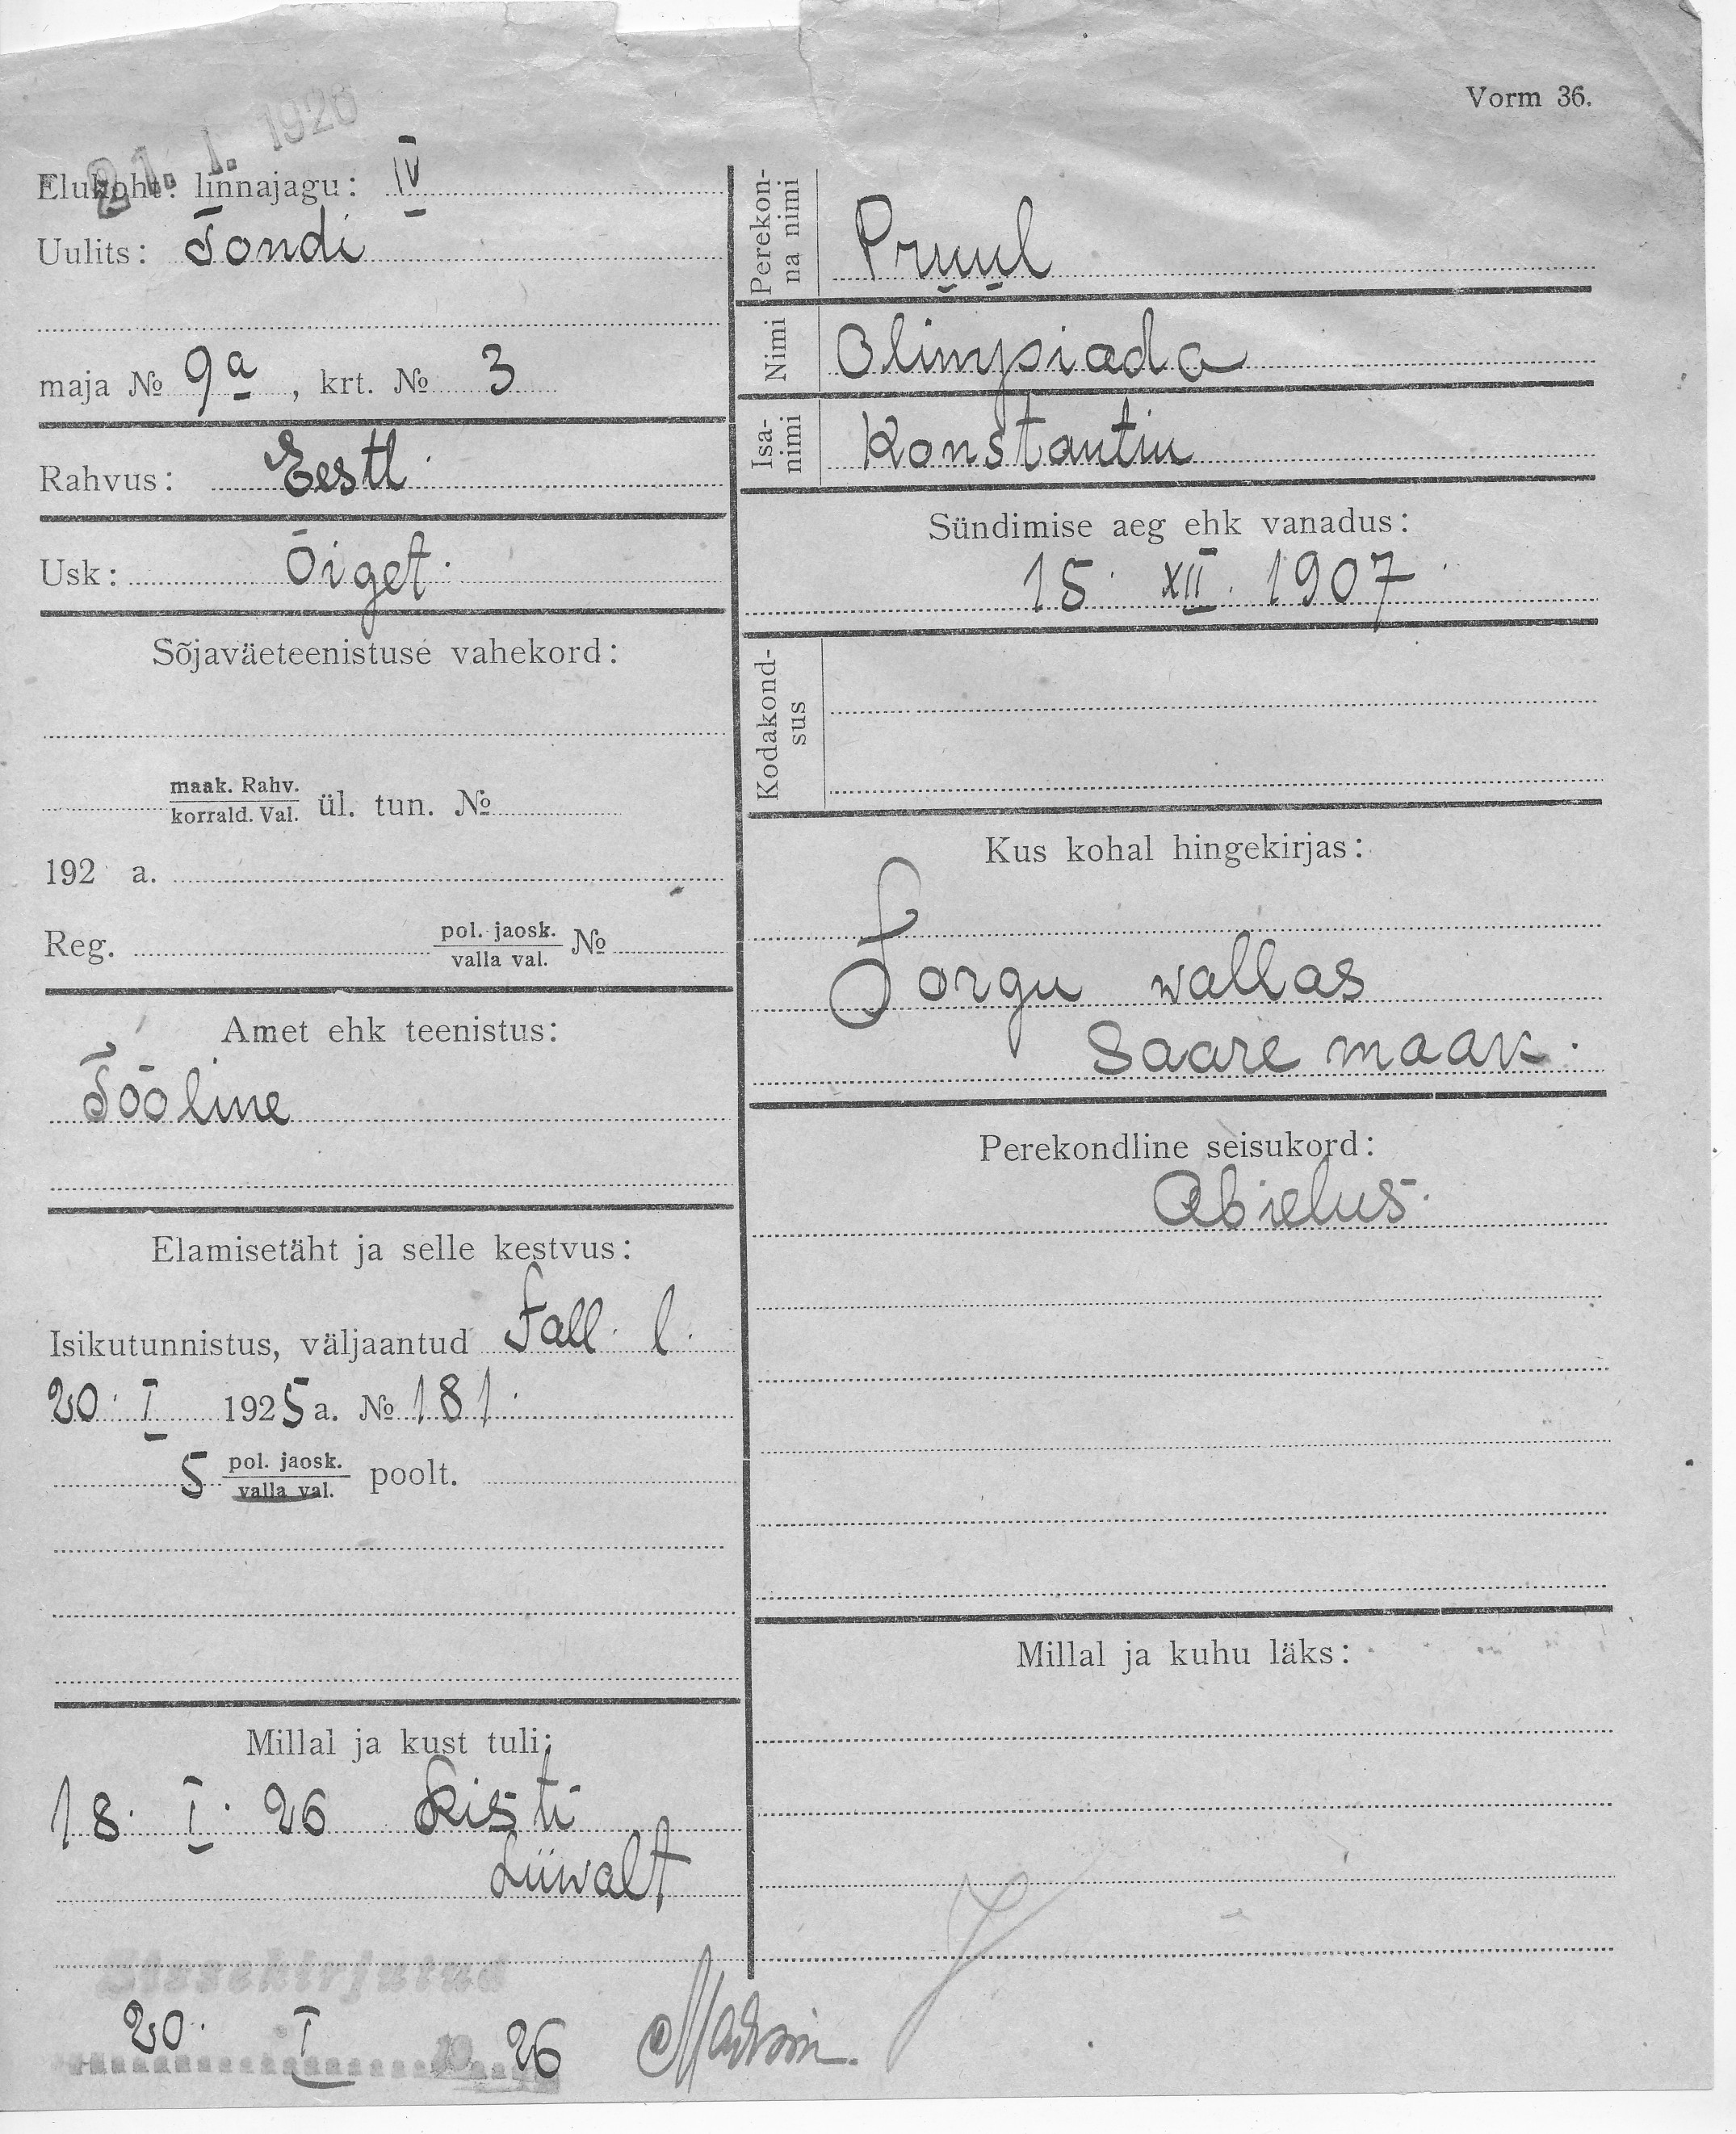 Vorm 36.
21. I. 1926
Elukoht: linnajagu: IV
Uulits: Tondi
maja № 9a, krt. № 3
Rahvus: Eestl.
Usk: Õiget.
Sõjaväeteenistuse vahekord:
maak. Rahv.
korrald. Val. ül. tun. №
192 a.
Reg. pol. jaosk.
valla val. №
Amet ehk teenistus:
Tööline
Elamisetäht ja selle kestvus:
Isikutunnistus, väljaantud Tall. l.
20. I 1925 a. № 181.
5 pol. jaosk.
valla val. poolt.
Millal ja kust tuli:
18. I. 26 Risti
Liiwalt
Sissekirjutud
20. I 26
Perekon-
na nimi
Pruul
Nimi
Olimpiada
Isa-
nimi
Konstantin
Sündimise aeg ehk vanadus:
15. XII. 1907.
Kodakond-
sus
Kus kohal hingekirjas:
Torgu wallas
Saare maak.
Perekondline seisukord:
Abielus.
Millal ja kuhu läks: